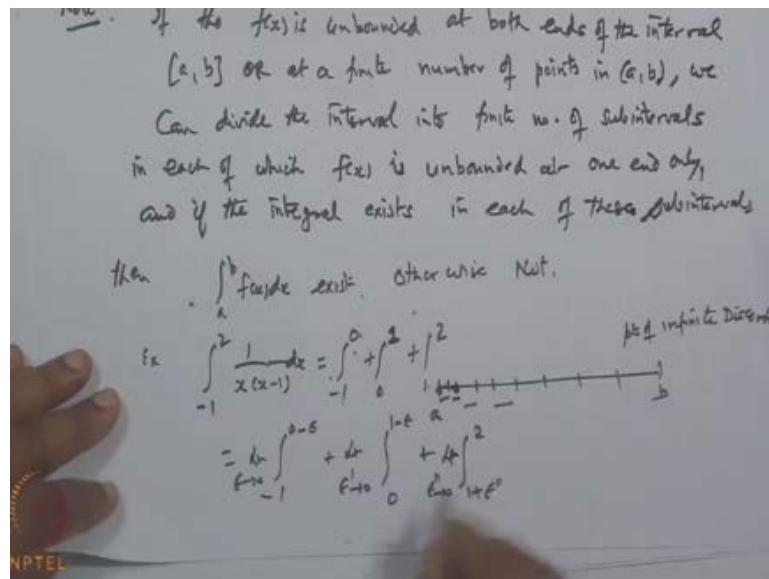 Note. If the f(x) is unbounded at both ends of the interval
[a, b] OR at a finite number of points in (a, b), we
Can divide the interval into finite no. of subintervals
in each of which f(x) is unbounded at one end only,
and if the integral exists in each of these subintervals
then ∫_a^b f(x)dx exist. Otherwise Not.
pt of infinite Discont
Ex ∫_{-1}^{2} 1/(x(x-1)) dx = ∫_{-1}^{0} + ∫_{0}^{1} + ∫_{1}^{2}
a b
= lt_{ε→0} ∫_{-1}^{0-ε} + lt_{ε'→0} ∫_{0}^{1-ε} + lt_{ε''→0} ∫_{1+ε''}^{2}
NPTEL